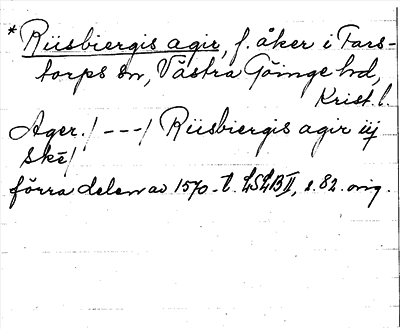 *Riisbiergis agir, f. åker i Fars-
torps sn, Västra Göinge hd,
Krist. l.
Ager./ ---/ Riisbiergis agir iij
skē/
förra delen av 1570-t. LSLB II, s. 82. orig.